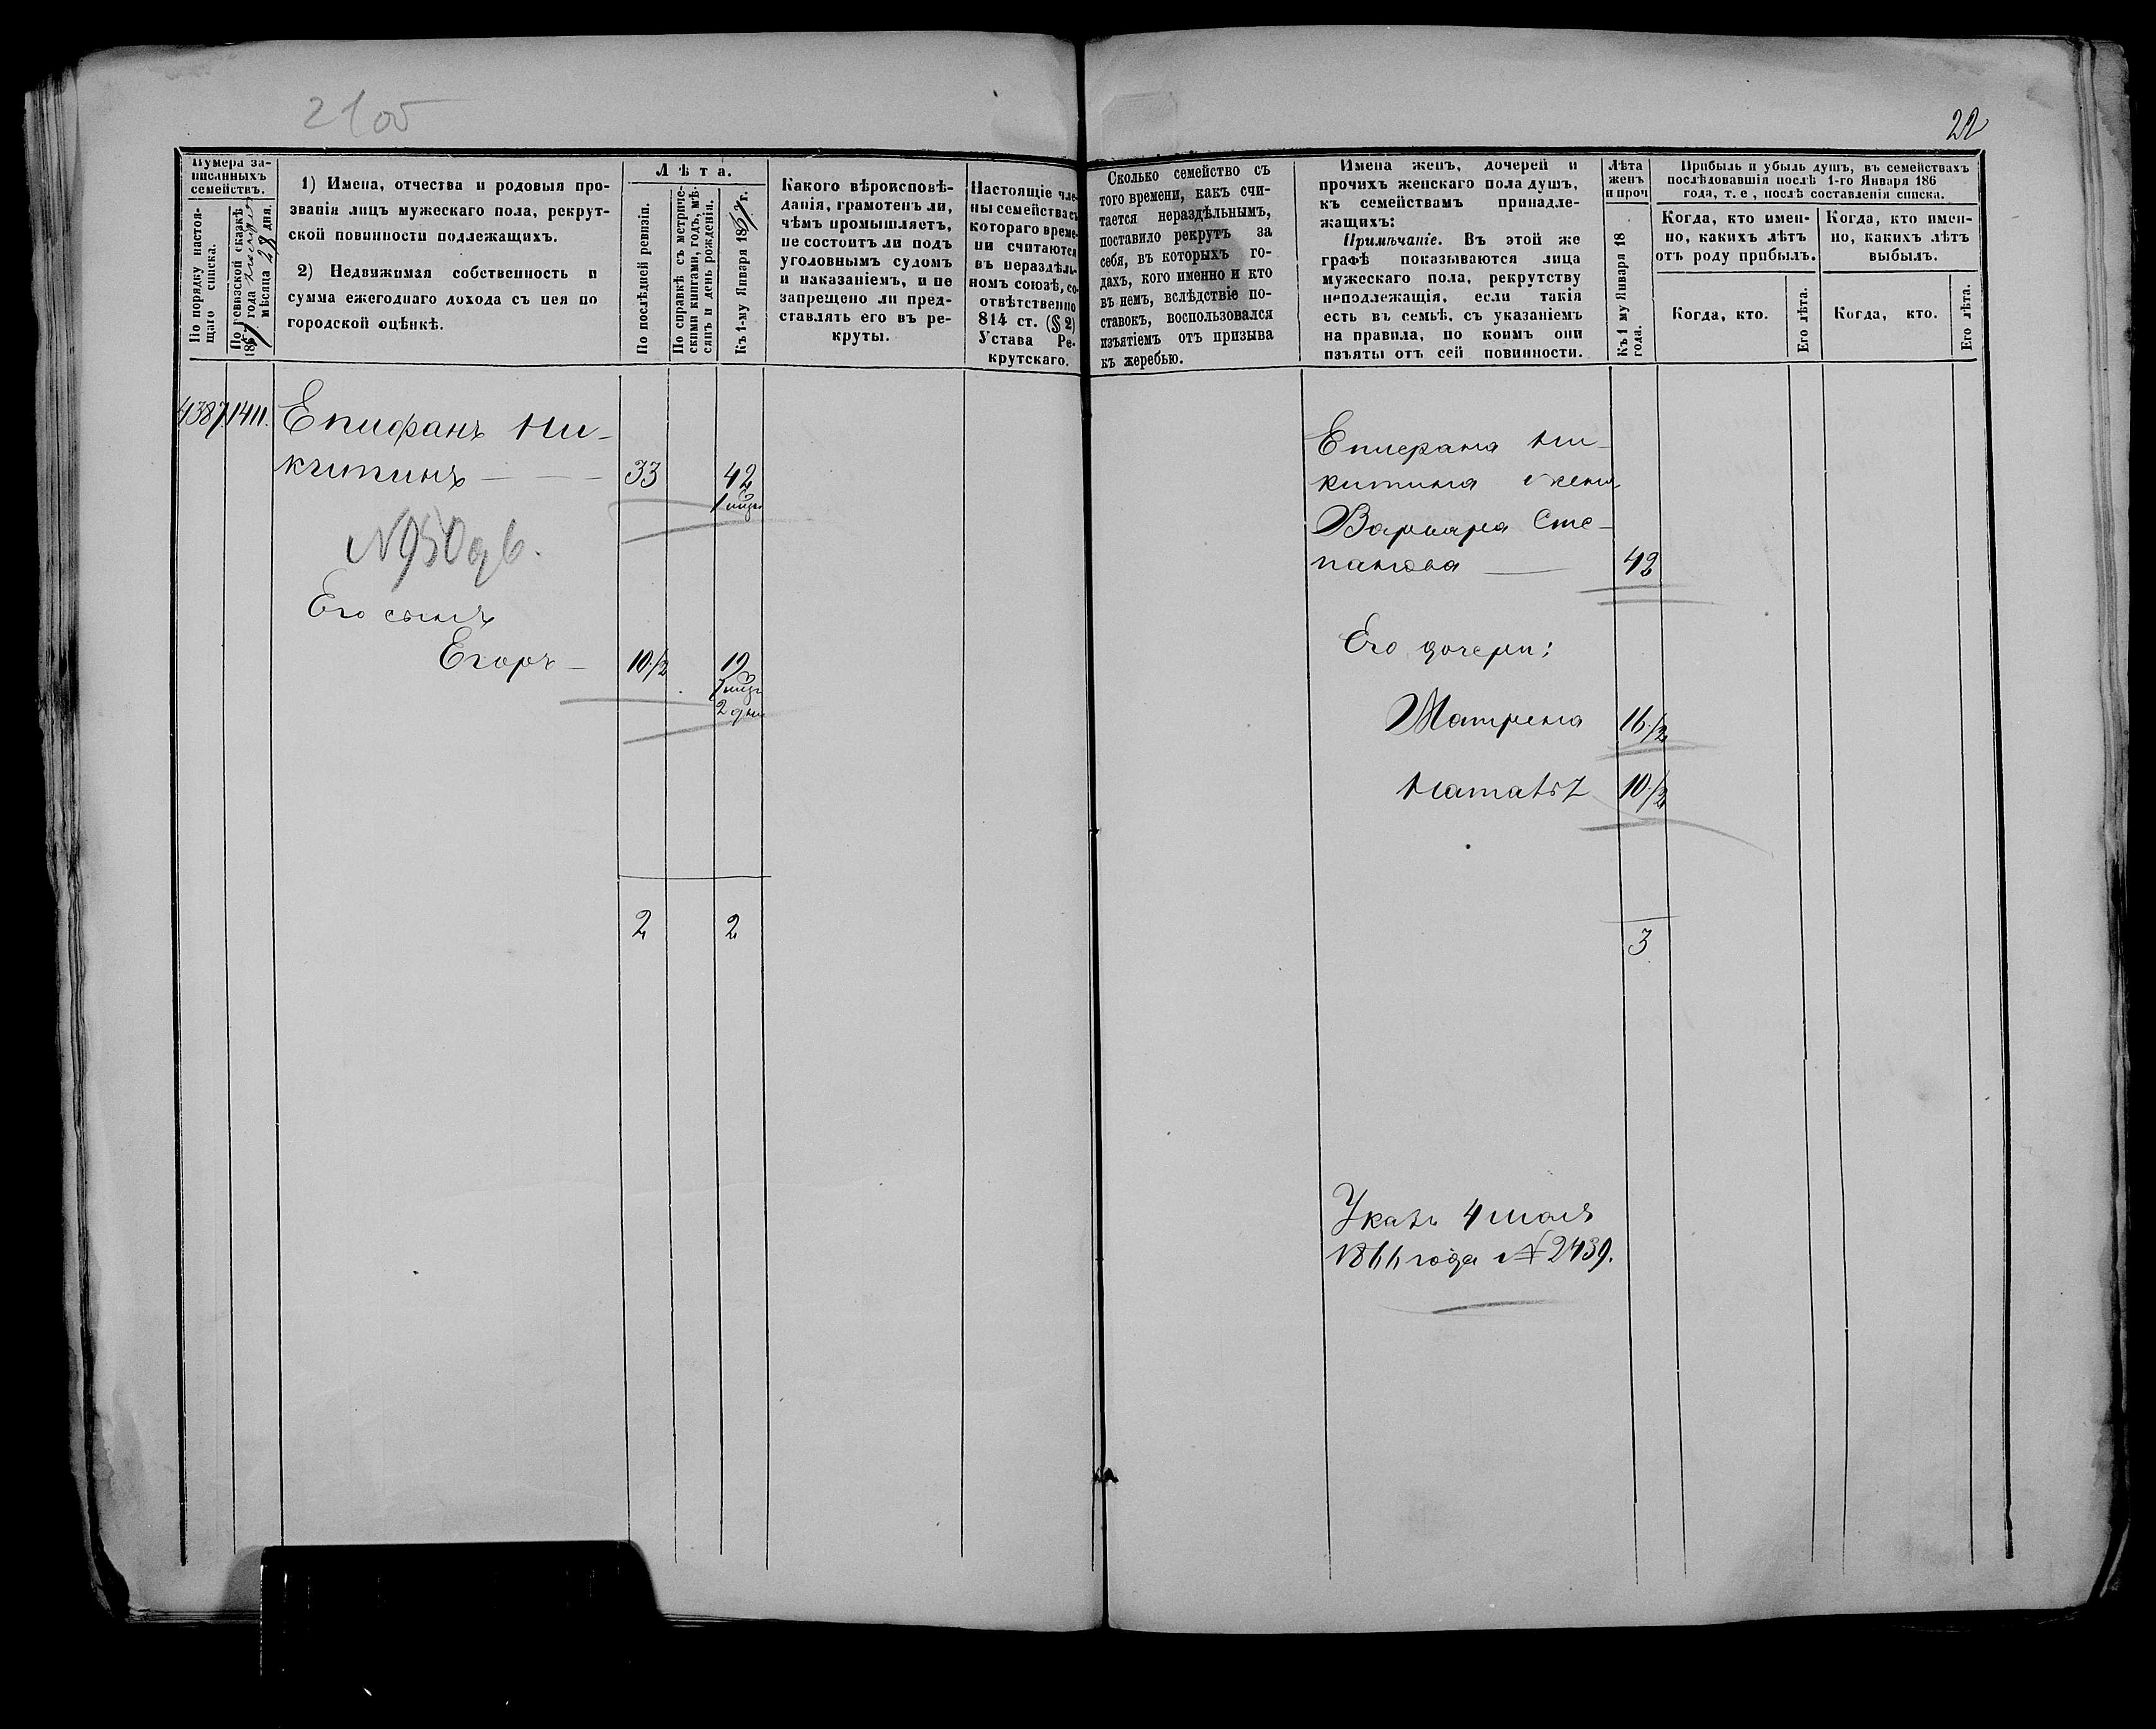 2100
22
Нумера за-
писанныхъ
семействъ.
По порядку настоя-
щаго списка.
По ревизской сказкѣ
186 года
мѣсяца 28 дня.
1) Имена, отчества и родовыя про-
званія лицъ мужескаго пола, рекрут-
ской повинности подлежащихъ.
2) Недвижимая собственность и
сумма ежегоднаго дохода съ нея по
городской оцѣнкѣ.
Лѣта.
По послѣдней ревизіи.
По справкѣ съ метриче-
скими книгами, годъ, мѣ-
сяцъ и день рожденія.
Къ 1-му Января 1867 г.
Какого вѣроисповѣ-
данія, грамотенъ ли,
чѣмъ промышляетъ,
не состоитъ ли подъ
уголовнымъ судомъ
и наказаніемъ, и не
запрещено ли пред-
ставлять его въ ре-
круты.
Настоящіе чле-
ны семейства съ
котораго време-
ни считаются
въ нераздѣль-
номъ союзѣ, со-
отвѣтственно
814 ст. (§ 2)
Устава Ре-
крутскаго.
Сколько семейство съ
того времени, какъ счи-
тается нераздѣльнымъ,
поставило рекрутъ за
себя, въ которыхъ го-
дахъ, кого именно и кто
въ немъ, вслѣдствіе по-
ставокъ, воспользовался
изъятіемъ отъ призыва
къ жеребью.
Имена женъ, дочерей и
прочихъ женскаго пола душъ,
къ семействамъ принадле-
жащихъ:
Примѣчаніе. Въ этой же
графѣ показываются лица
мужескаго пола, рекрутству
неподлежащія, если такія
есть въ семьѣ, съ указаніемъ
на правила, по коимъ они
изъяты отъ сей повинности.
Лѣта
женъ
и проч.
Къ 1 му Января 18
года.
Прибыль и убыль душъ, въ семействахъ
послѣдовавшія послѣ 1-го Января 186
года, т. е, послѣ составленія списка.
Когда, кто имен-
но, какихъ лѣтъ
отъ роду прибылъ.
Когда, кто имен-
но, какихъ лѣтъ
выбылъ.
Когда, кто.
Его лѣта.
Когда, кто.
Его лѣта.
4387 1411. Епифанъ Ни-
китинъ — 33 42
1 мцъ
Его сынъ
Егоръ — 10 1/2 19
7 мцъ
2 дни
2 2
Епифана Ни-
китина жена
Варвара Сте-
панова — 42
Его дочери:
Матрена 16 1/2
Наталья 10 1/2
3
Указъ 4 мая
1866 года № 2439.